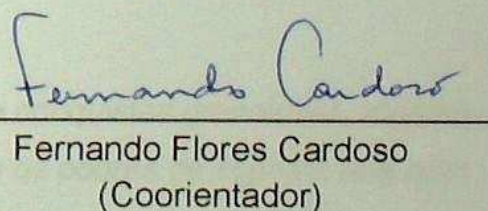 Fernando Cardoso
Fernando Flores Cardoso
(Coorientador)